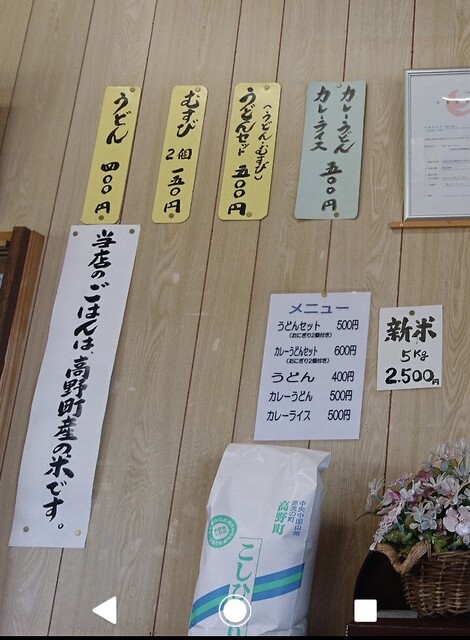 カレーうどん
カレーライス 五〇〇円
(うどん・むすび)
うどんセット 五〇〇円
むすび 2個 一五〇円
うどん 四〇〇円
当店のごはんは、高野町産の米です。
メニュー
うどんセット 500円
(おにぎり2個付き)
カレーうどんセット 600円
(おにぎり2個付き)
うどん 400円
カレーうどん 500円
カレーライス 500円
新米
5Kg
2.500円
中央中国山地
源流の町
高野町
こしひかり